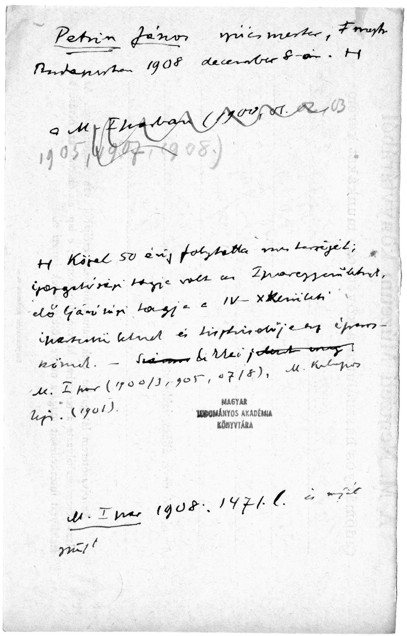 Petrin János szűcsmester, F
Budapesten 1908 december 8-án. H
a M. Iparban (1900, 01. 02, 03
1905, 1907, 1908.)
H Közel 50 évig folytatta mesterségét;
igazgatósági tagja volt az Iparegyesületnek,
előljárósági tagja a IV-X kerületi
ipartestületnek és tiszteletbeli ipáros-
körnek. – Számos cikkei jelent meg
M. Ipar (1900/3, 905, 07/8), M. Kalapos
Ipr. (1901).
MAGYAR
TUDOMÁNYOS AKADÉMIA
KÖNYVTÁRA
M. Ipar 1908. 1471. l. és saját